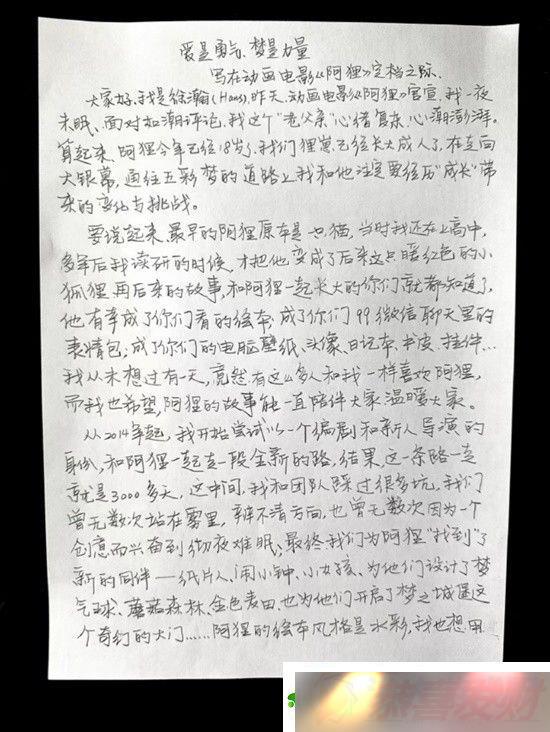 爱是勇气、梦是力量
写在动画电影《阿狸》定档之际、
大家好、我是徐瀚(Hans),昨天、动画电影《阿狸》官宣,我一夜
未眠、面对如潮评论、我这个“老父亲”心绪复杂、心潮澎湃。
算起来、阿狸今年已经18岁了、我们狸崽已经长大成人了、在走向
大银幕,通往五彩梦的道路上我和他注定要经历“成长”带
来的变化与挑战。
要说起来、最早的阿狸原本是一只猫,当时我还在上高中,
多年后我读研的时候、才把他变成了后来这只暖红色的小
狐狸、再后来的故事,和阿狸一起长大的你们就都知道了,
他有幸成了你们看的绘本,成了你们99微信聊天里的
表情包,成了你们的电脑壁纸、头像、日记本、书皮、挂件…
我从未想过有一天,竟然有这么多人和我一样喜欢阿狸,
而我也希望,阿狸的故事能一直陪伴大家、温暖大家。
从2014年起,我开始尝试以一个编剧和新人导演的
身份,和阿狸一起走一段全新的路,结果,这一条路一走
就是3000多天,这中间,我和团队踩过很多坑,我们
曾无数次站在雾里,辨不清方向,也曾无数次因为一个
创意而兴奋到彻夜难眠、最终我们为阿狸“找到”了
新的同伴——纸片人、闹小钟、小女孩、为他们设计了梦
气球、蘑菇森林、金色麦田,也为他们开启了梦之城堡这
个奇幻的大门……阿狸的绘本风格是水彩,我也想用